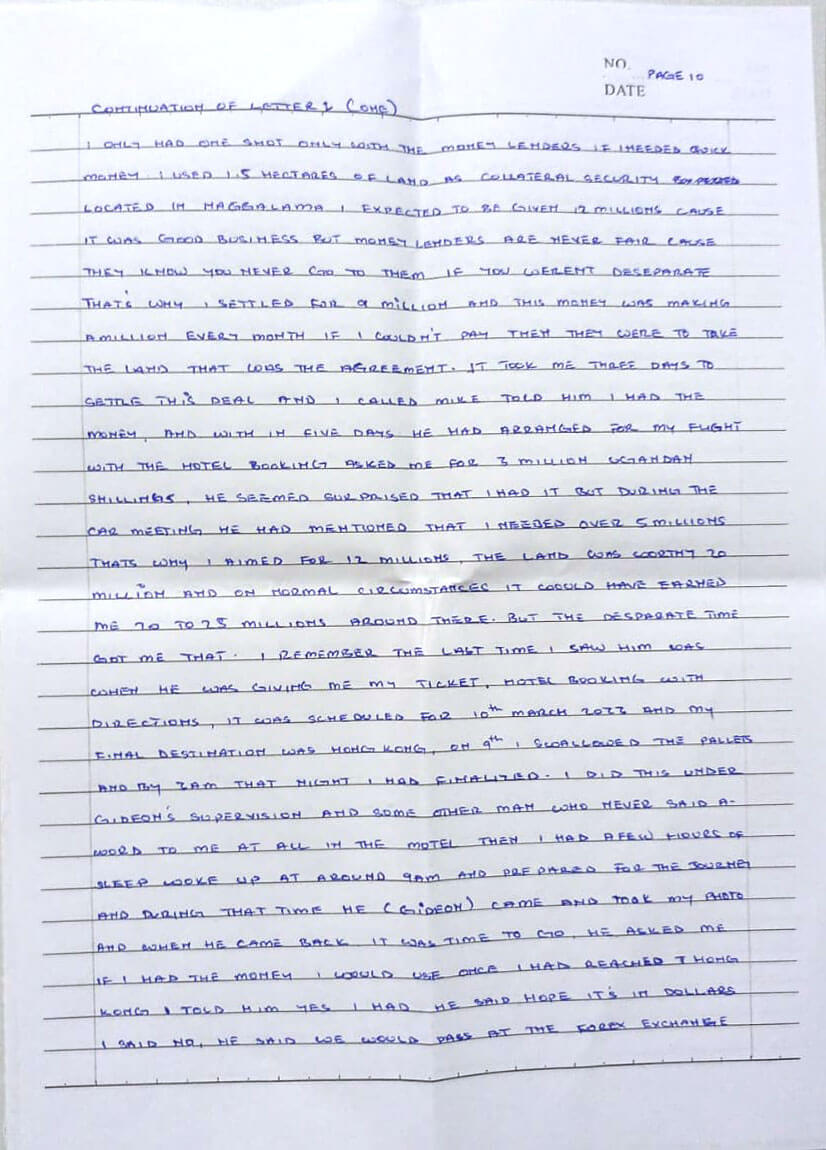 NO. PAGE 10
DATE
CONTINUATION OF LETTER 1 (ONE)
I ONLY HAD ONE SHOT ONLY WITH THE MONEY LENDERS IF I NEEDED QUICK
MONEY. I USED 1.5 HECTARES OF LAND AS COLLATERAL SECURITY
LOCATED IN NAGGALAMA I EXPECTED TO BE GIVEN 12 MILLIONS CAUSE
IT WAS GOOD BUSINESS BUT MONEY LENDERS ARE NEVER FAIR CAUSE
THEY KNOW YOU NEVER GO TO THEM IF YOU WERENT DESEPARATE
THAT'S WHY I SETTLED FOR 9 MILLION AND THIS MONEY WAS MAKING
A MILLION EVERY MONTH IF I COULDN'T PAY THEM THEY WERE TO TAKE
THE LAND THAT WAS THE AGREEMENT. IT TOOK ME THREE DAYS TO
SETTLE THIS DEAL AND I CALLED MIKE TOLD HIM I HAD THE
MONEY, AND WITH IN FIVE DAYS HE HAD ARRANGED FOR MY FLIGHT
WITH THE HOTEL BOOKING ASKED ME FOR 3 MILLION UGANDAN
SHILLINGS, HE SEEMED SURPRISED THAT I HAD IT BUT DURING THE
CAR MEETING HE HAD MENTIONED THAT I NEEDED OVER 5 MILLIONS
THATS WHY I AIMED FOR 12 MILLIONS, THE LAND WAS WORTHY 20
MILLION AND ON NORMAL CIRCUMSTANCES IT COOULD HAVE EARNED
ME 20 TO 25 MILLIONS AROUND THERE. BUT THE DESPARATE TIME
GOT ME THAT. I REMEMBER THE LAST TIME I SAW HIM WAS
WHEN HE WAS GIVING ME MY TICKET, HOTEL BOOKING WITH
DIRECTIONS, IT WAS SCHEDULED FOR 10th MARCH 2023 AND MY
FINAL DESTINATION WAS HONG KONG, ON 9th I SWALLOWED THE PALLETS
AND BY 3AM THAT NIGHT I HAD FINALIZED. I DID THIS UNDER
GIDEON'S SUPERVISION AND SOME OTHER MAN WHO NEVER SAID A-
WORD TO ME AT ALL IN THE MOTEL THEN I HAD A FEW HOURS OF
SLEEP WOKE UP AT AROUND 9AM AND PREPARED FOR THE JOURNEY
AND DURING THAT TIME HE (GIDEON) CAME AND TOOK MY PHOTO
AND WHEN HE CAME BACK IT WAS TIME TO GO, HE ASKED ME
IF I HAD THE MONEY I WOULD USE ONCE I HAD REACHED HONG
KONG I TOLD HIM YES I HAD HE SAID HOPE IT'S IN DOLLARS
I SAID NO, HE SAID WE WOULD PASS AT THE FOREX EXCHANGE